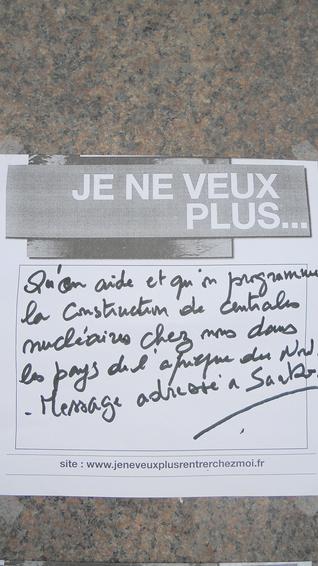 JE NE VEUX
PLUS...
Qu'on aide et qu'on programme
la construction de centrales
nucléaires chez nous dans
les pays de l'afrique du Nord.
- Message adressé à
site : www.jeneveuxplusrentrerchezmoi.fr